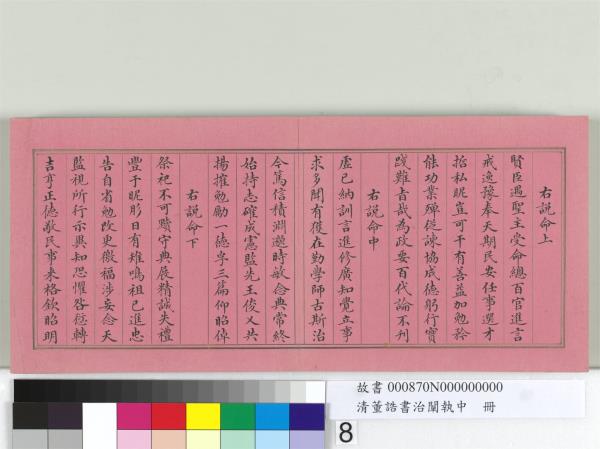 右說命上
賢臣遇聖主受命總百官進言
戒逸豫奉天期民安任事選才
能功業殫從諫協成德躬行實
踐難旨哉為政要百代論不刊
右說命中
虛己納訓言進修廣知覺立事
求多聞有獲在勤學師古斯治
今篤信積淵邈時敏念典常終
始持志確成憲監先王俊乂共
揚擢勉勵一德孚三篇仰昭倬
右說命下
祭祀不可黷守典展精誠失禮
豐于昵肜日有雉鳴祖己進忠
告自省勉改更徼福涉妄念天
監視所行示異知恐懼咎愆轉
吉亨正德敬民事来格欽昭明
故書 000870N000000000
清董誥書治闡執中 冊
8